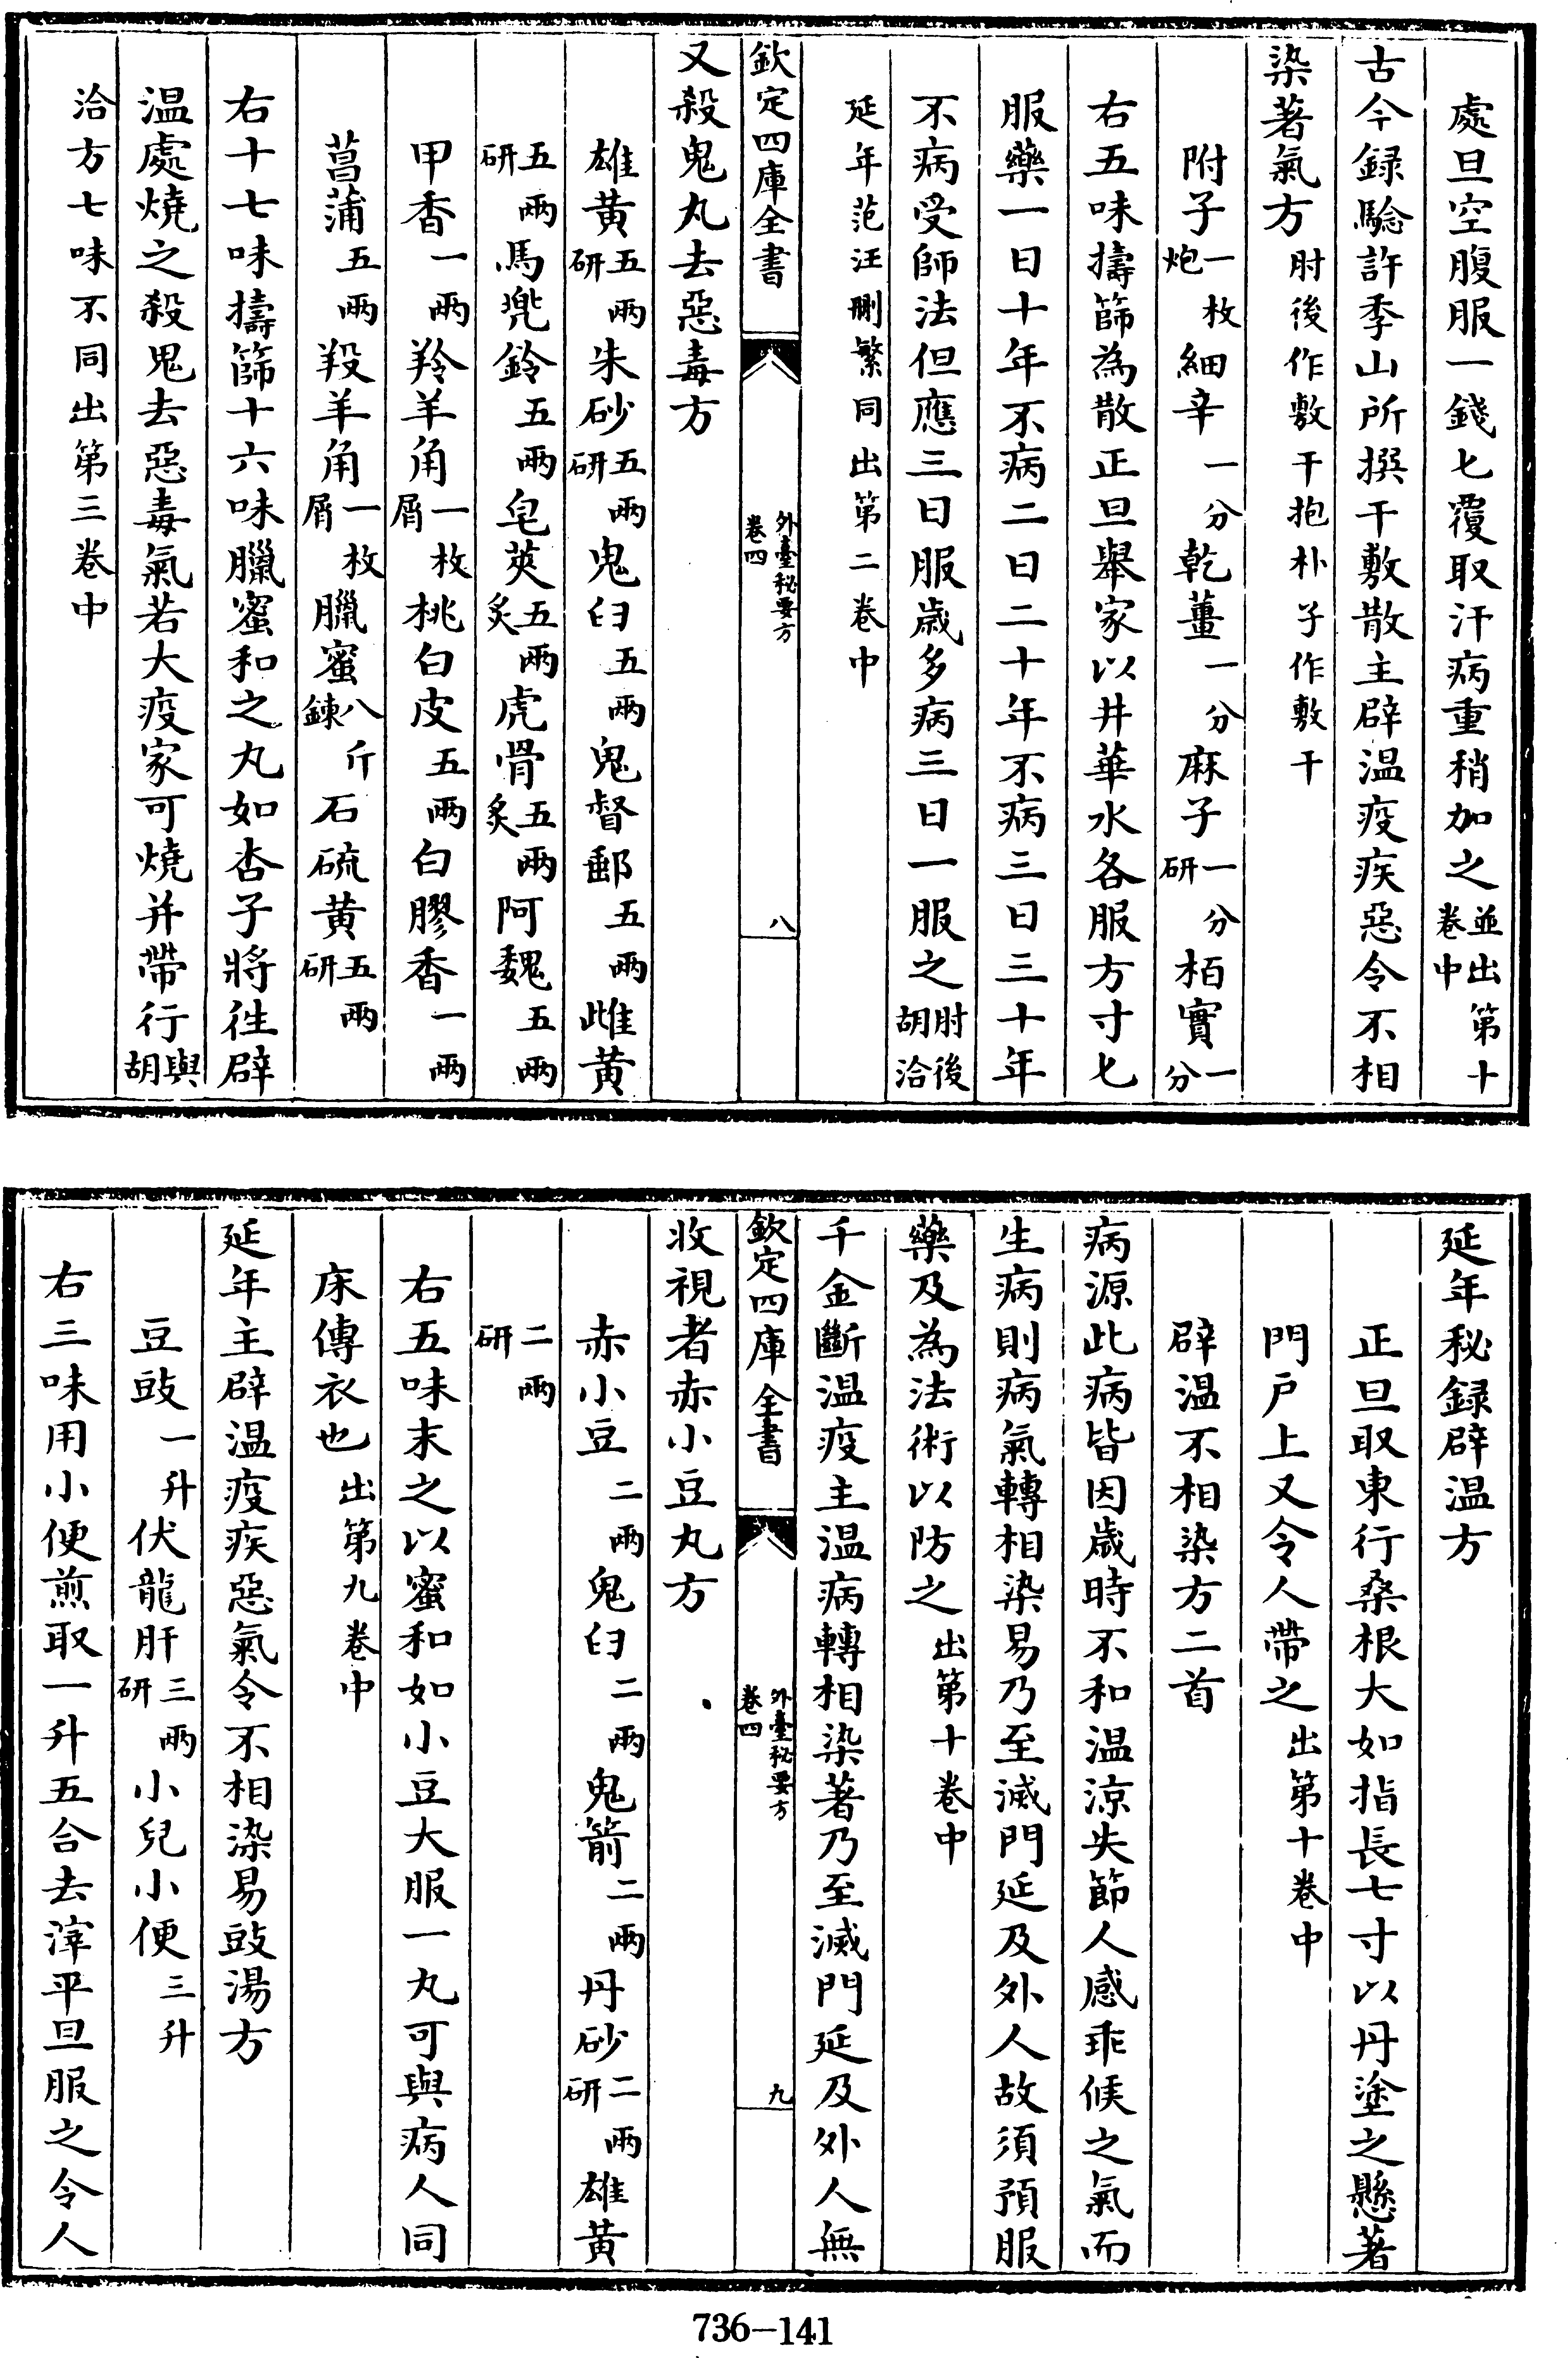 處旦空腹服一錢匕覆取汗病重稍加之並出第十卷中
古今録驗許季山所撰干敷散主辟温疫疾惡令不相
染著氣方肘後作敷干抱朴子作敷干
附子一枚炮細辛一分乾薑一分麻子一分研柏實一分
右五味擣篩為散正旦舉家以井華水各服方寸匕
服藥一日十年不病二日二十年不病三日三十年
不病受師法但應三日服歳多病三日一服之肘後胡洽
延年范汪刪繁同出第二卷中
欽定四庫全書
外臺秘要方
卷四
八
又殺鬼丸去惡毒方
雄黄五兩研朱砂五兩研鬼臼五兩鬼督郵五兩雌黄
五兩研馬兠鈴五兩皂莢五兩炙虎骨五兩炙阿魏五兩
甲香一兩羚羊角一枚屑桃白皮五兩白膠香一兩
菖蒲五兩羖羊角一枚屑臘蜜八斤鍊石硫黄五兩研
右十七味擣篩十六味臘蜜和之丸如杏子將徃辟
温處燒之殺鬼去惡毒氣若大疫家可燒并帶行與胡
洽方七味不同出第三卷中
延年秘録辟温方
正旦取東行桑根大如指長七寸以丹塗之懸著
門戸上又令人帶之出第十卷中
辟温不相染方二首
病源此病皆因歳時不和温涼失節人感乖候之氣而
生病則病氣轉相染易乃至滅門延及外人故須預服
藥及為法術以防之出第十卷中
千金斷温疫主温病轉相染著乃至滅門延及外人無
欽定四庫全書
外臺秘要方
卷四
九
收視者赤小豆丸方
赤小豆二兩鬼臼二兩鬼箭二兩丹砂二兩研雄黄
二兩研
右五味末之以蜜和如小豆大服一丸可與病人同
床傳衣也出第九卷中
延年主辟温疫疾惡氣令不相染易豉湯方
豆豉一升伏龍肝三兩研小兒小便三升
右三味用小便煎取一升五合去滓平旦服之令人
736-141